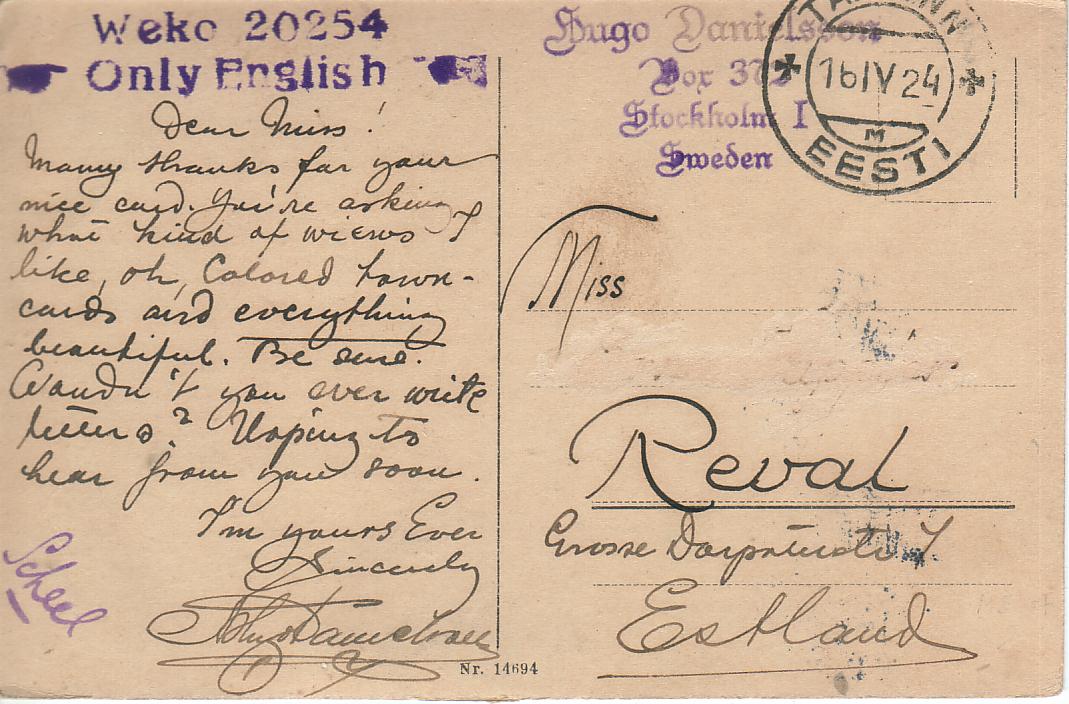 Weko 20254
Only English
Dear Miss!
Many thanks for your
nice card. You're asking
what kind of wiews I
like, oh, Colored town-
cards and everything
beautiful. Be sure.
Woudn't you ever write
letters? Hoping to
hear from you soon.
I'm yours Ever
Sincerely
Hugo Danielsson
Scheel
Nr. 14694
Hugo Danielsson
Box 372
Stockholm 1
Sweden
TALLINN
16 IV 24
M
EESTI
Miss
Reval
Grosse 7
Estland